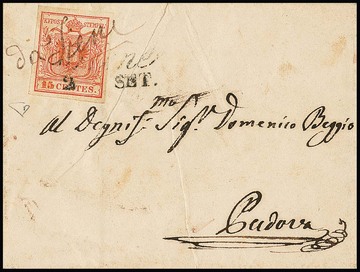 KYPOST-STEMPEL
15 CENTES.
2
SET.
Al Degnis. Sig.r Domenico Beggio
Padova